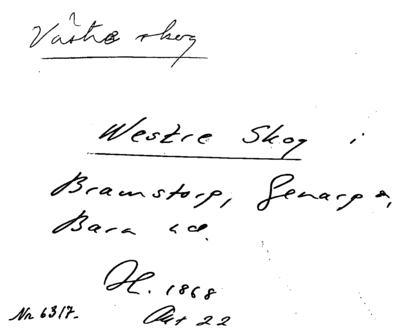 Västra skog
Westre Skog i
Bramstorp, Genarp s,
Bara hd.
H. 1868
Akt 22
Nr 6317.